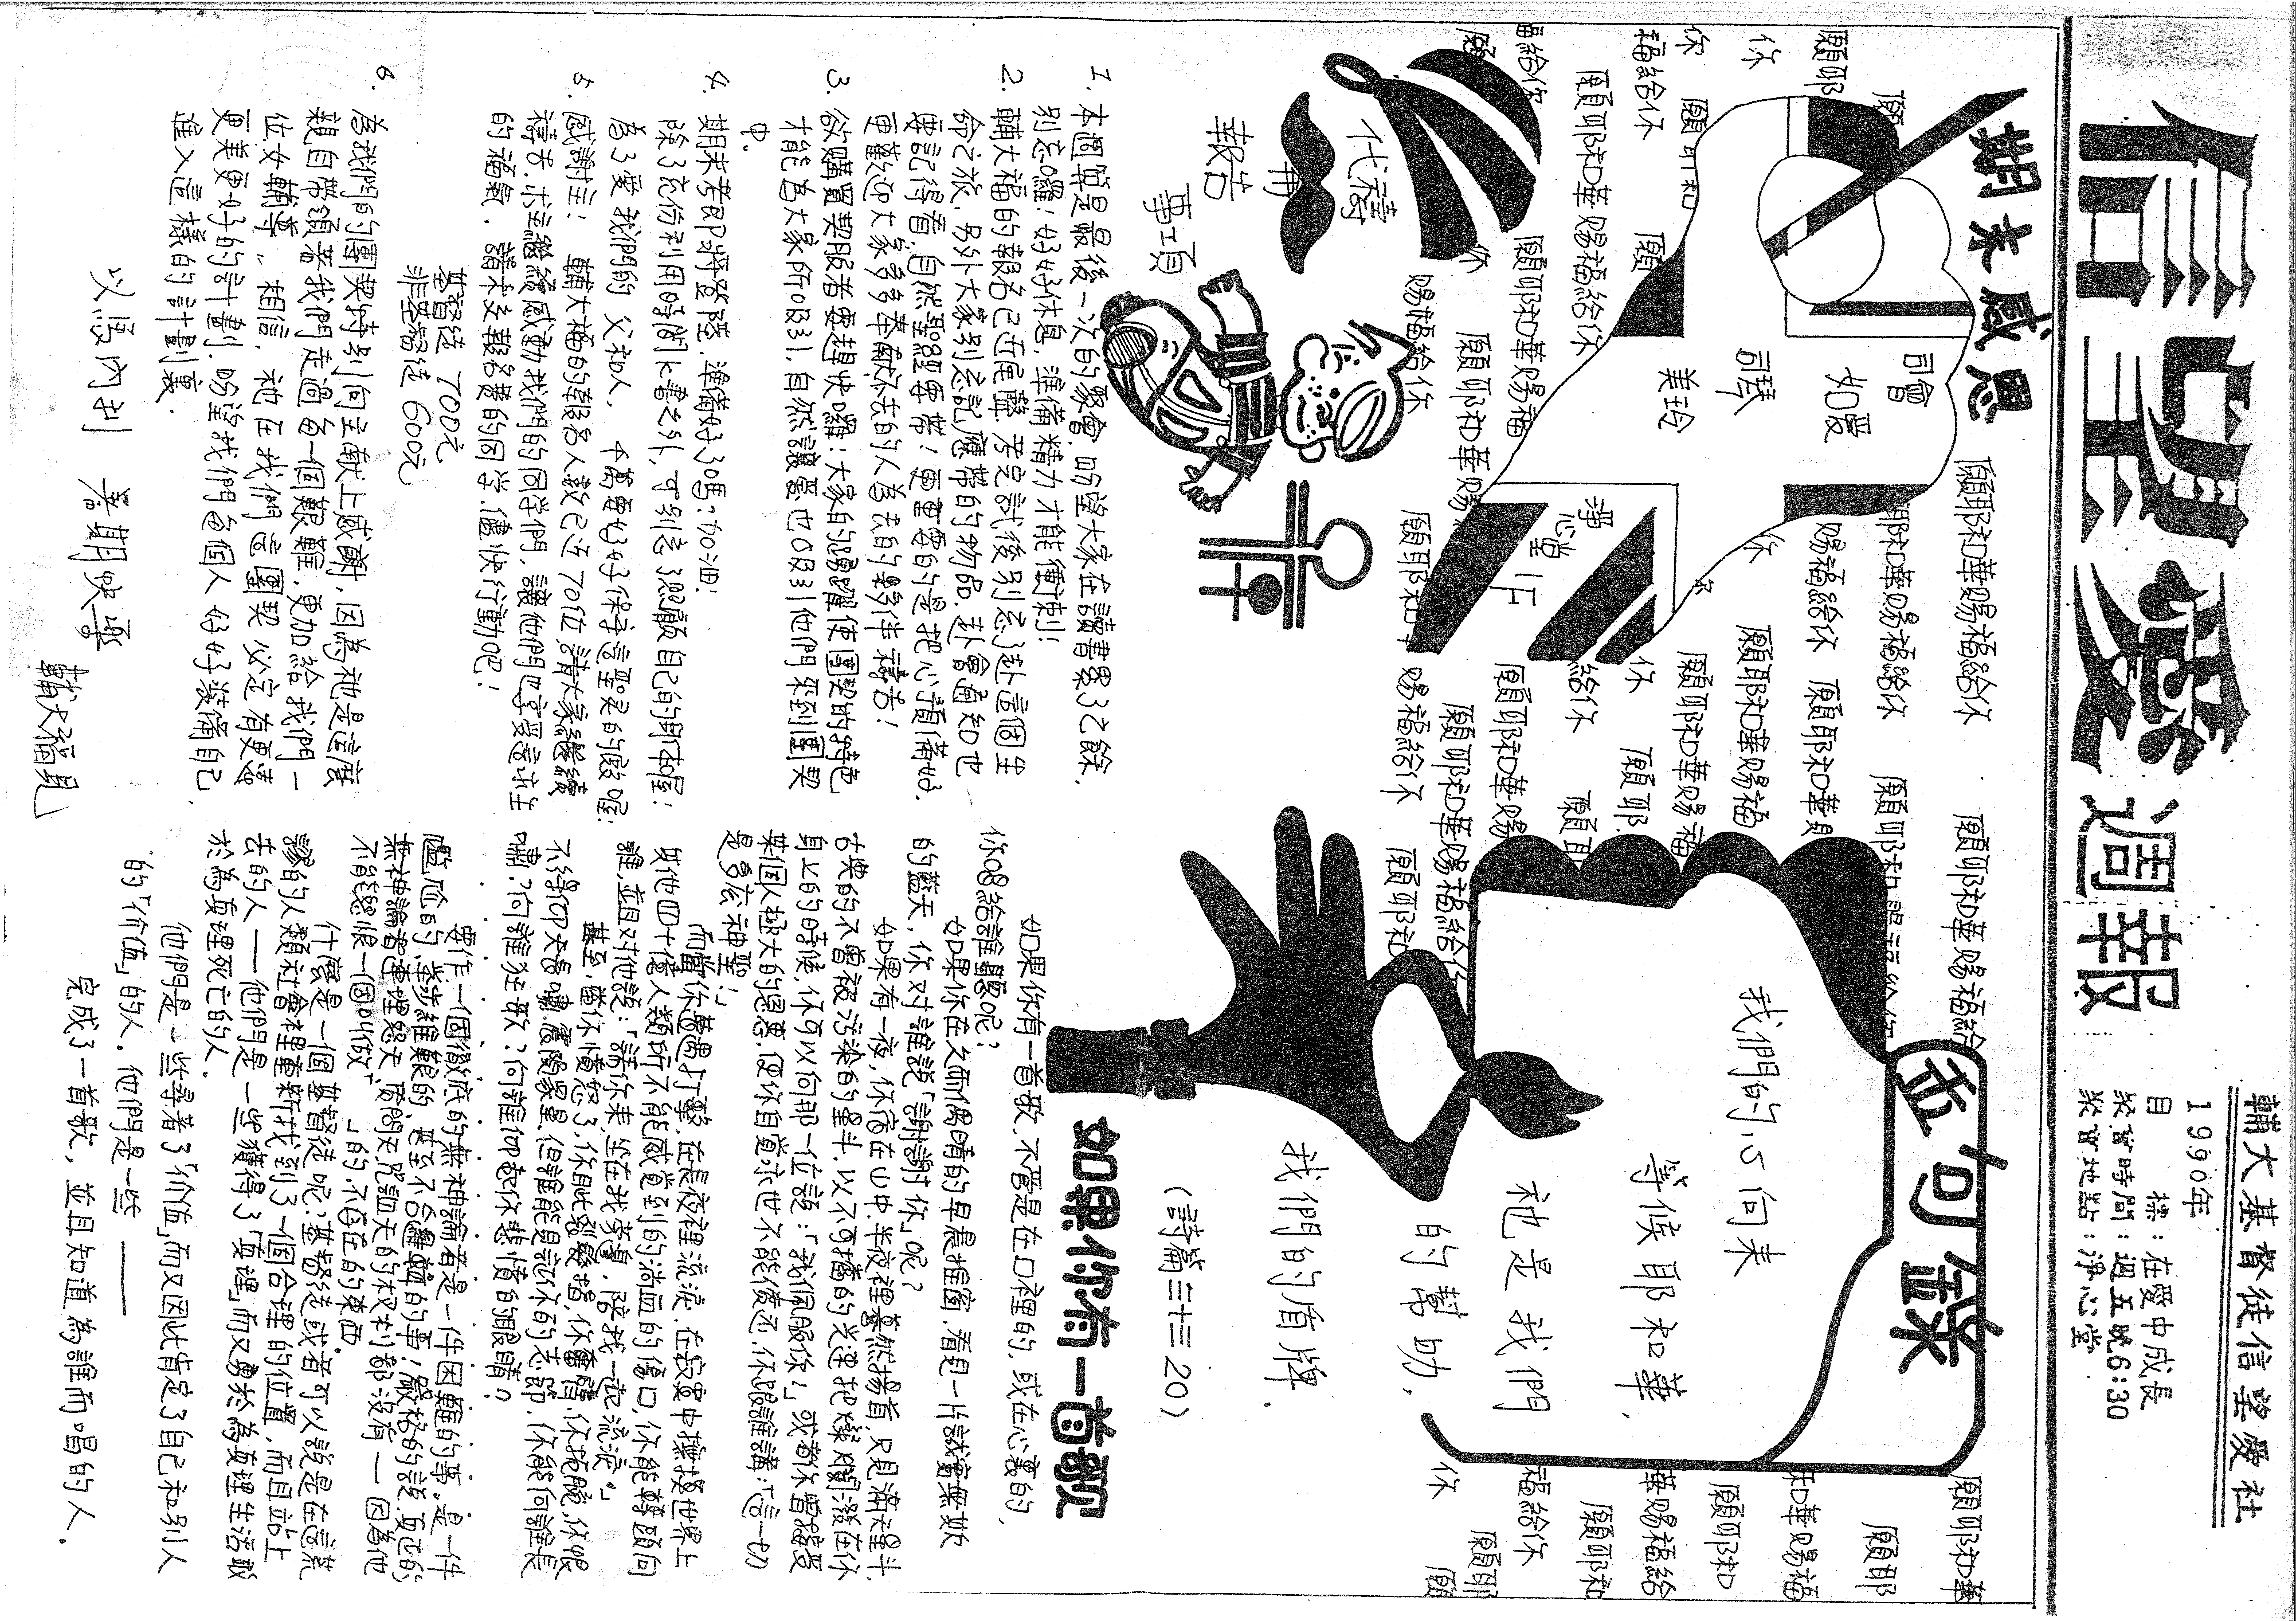 信望愛週報
輔大基督徒信望愛社
1990年
目標：在愛中成長
聚會時間：週五晚6:30
聚會地點：淨心堂
期末感恩
司會
如愛
司琴
美玲
淨心堂
願耶和華賜福給你
願耶和華賜福給你
願耶和華賜福給你
金句錄
我們的心向來
等候耶和華，
祂是我們
的幫助，
我們的盾牌．
(詩篇三十三20)
代禱
報告
事項
1. 本個算是最後一次的聚會．盼望大家在讀書累了之餘，
別忘囉！好好休息，準備精力才能衝刺！
2. 輔大福的報名已近尾聲．考完試後別忘了赴這個生
命之旅，另外大家別忘記應帶的物品．赴會通知也
要記得看；自然聖經要帶！更重要的是把心預備好．
更歡迎大家多多奉獻不去的人為去的夥伴禱告！
3. 欲購買契服者要趕快喔！大家的踴躍使團契的特色
才能為大家所吸引，自然讓愛也吸引他們來到團契
中．
4. 期末考即將登陸，準備好了嗎？加油！
除了充份利用時間K書之外，可別忘了照顧自己的身體喔！
為了愛我們的父和人，千萬要好好保守這聖潔的殿喔．
5. 感謝主！輔大福的報名人數已近70位，請大家繼續
禱告．求主繼續感動我們的同學們，讓他們也享受這主
的福氣．請未交報名費的同學，儘快行動吧！
基督徒 700元
非基督徒 600元
6. 為我們的團契特別向主獻上感謝，因為祂是這樣
親自帶領著我們走過每一個艱難，更加給我們一
位女輔導．相信，祂在我們這團契必定有更適
更美更好的計劃．盼望我們每個人好好裝備自己，
進入這樣的計劃裏．
以馬內利 暑期快樂
輔大福見
如果你有一首歌
如果你有一首歌，不管是在口裡的，或在心裏的，
你唱給誰聽呢？
如果你在久雨偶晴的早晨推窗，看見一片誠藹無欺
的藍天，你對誰說「謝謝你」呢？
如果有一夜，你宿在山中，半夜裡驀然揚首，只見滿天星斗，
古樸的不曾被污染的星斗，以不可擋的光速把燦爛潑在你
身上的時候，你可以向那一位說：「我佩服你！」或者你曾接受
某個人極大的恩惠，使你自覺永世不能償還，你跟誰講：「這一切
是多麼神聖！」
而當你遭遇打擊，在長夜裡流淚，在寂寞中撫摸世界上
其他四十億人類所不能感覺到的淌血的傷口，你能轉頭向
誰，並且對他說：「請你來，坐在我旁邊，陪我一起流淚。」
甚至，當你憤怒了，你眦裂髮指，你奮臂，你扼腕，你恨
不得仰天長嘯，震隕眾星，但誰能見証你的志節，你能向誰長
嘯？向誰狂歌？向誰仰起你悲憤的眼睛？
要作一個徹底的無神論者是一件困難的事。是一件
尷尬的，舉步維艱的，甚至不合邏輯的事；嚴格的說，真正的
無神論者連埋怨天、質問天、咒詛天的權利都沒有——因為他
不能恨一個叫做「　　」的不存在的東西。
什麼是一個基督徒呢？基督徒或者可以說是在這荒
謬的人類社會裡重新找到了一個合理的位置，而且站上
去的人——他們是一些獲得了「真理」而又勇於為真理生活敢
於為真理死亡的人。
他們是一些尋著了「价值」而又因此肯定了自己和別人
的「价值」的人．他們是一些——
完成了一首歌，並且知道為誰而唱的人．